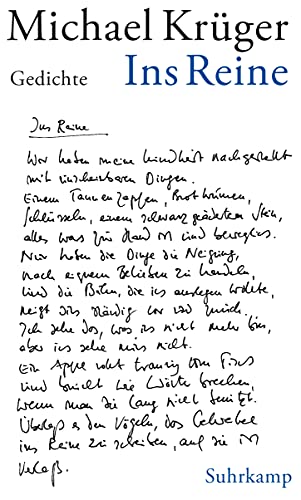 Michael Krüger
Gedichte Ins Reine
Ins Reine
Wir haben meine Kindheit nachgestellt
mit unscheinbaren Dingen.
Einem Tannenzapfen, Brotkrümen,
Schlüsseln, einem schwarz geäderten Stein,
alles was zur Hand ist und beweglich.
Nur haben die Dinge die Neigung,
nach eignem Belieben zu handeln,
und die Bühne, die ich auslegen wollte,
neigt sich ständig vor und zurück.
Ich sehe das, was ich nicht mehr bin,
aber ich sehe mich nicht.
Ein Apfel rollt traurig vom Tisch
und bricht wie Worte brechen,
wenn man sie lang nicht benützt.
Überlaß es den Vögeln, das Gekrakel
ins Reine zu schreiben, auf die ist
Verlaß.
Suhrkamp